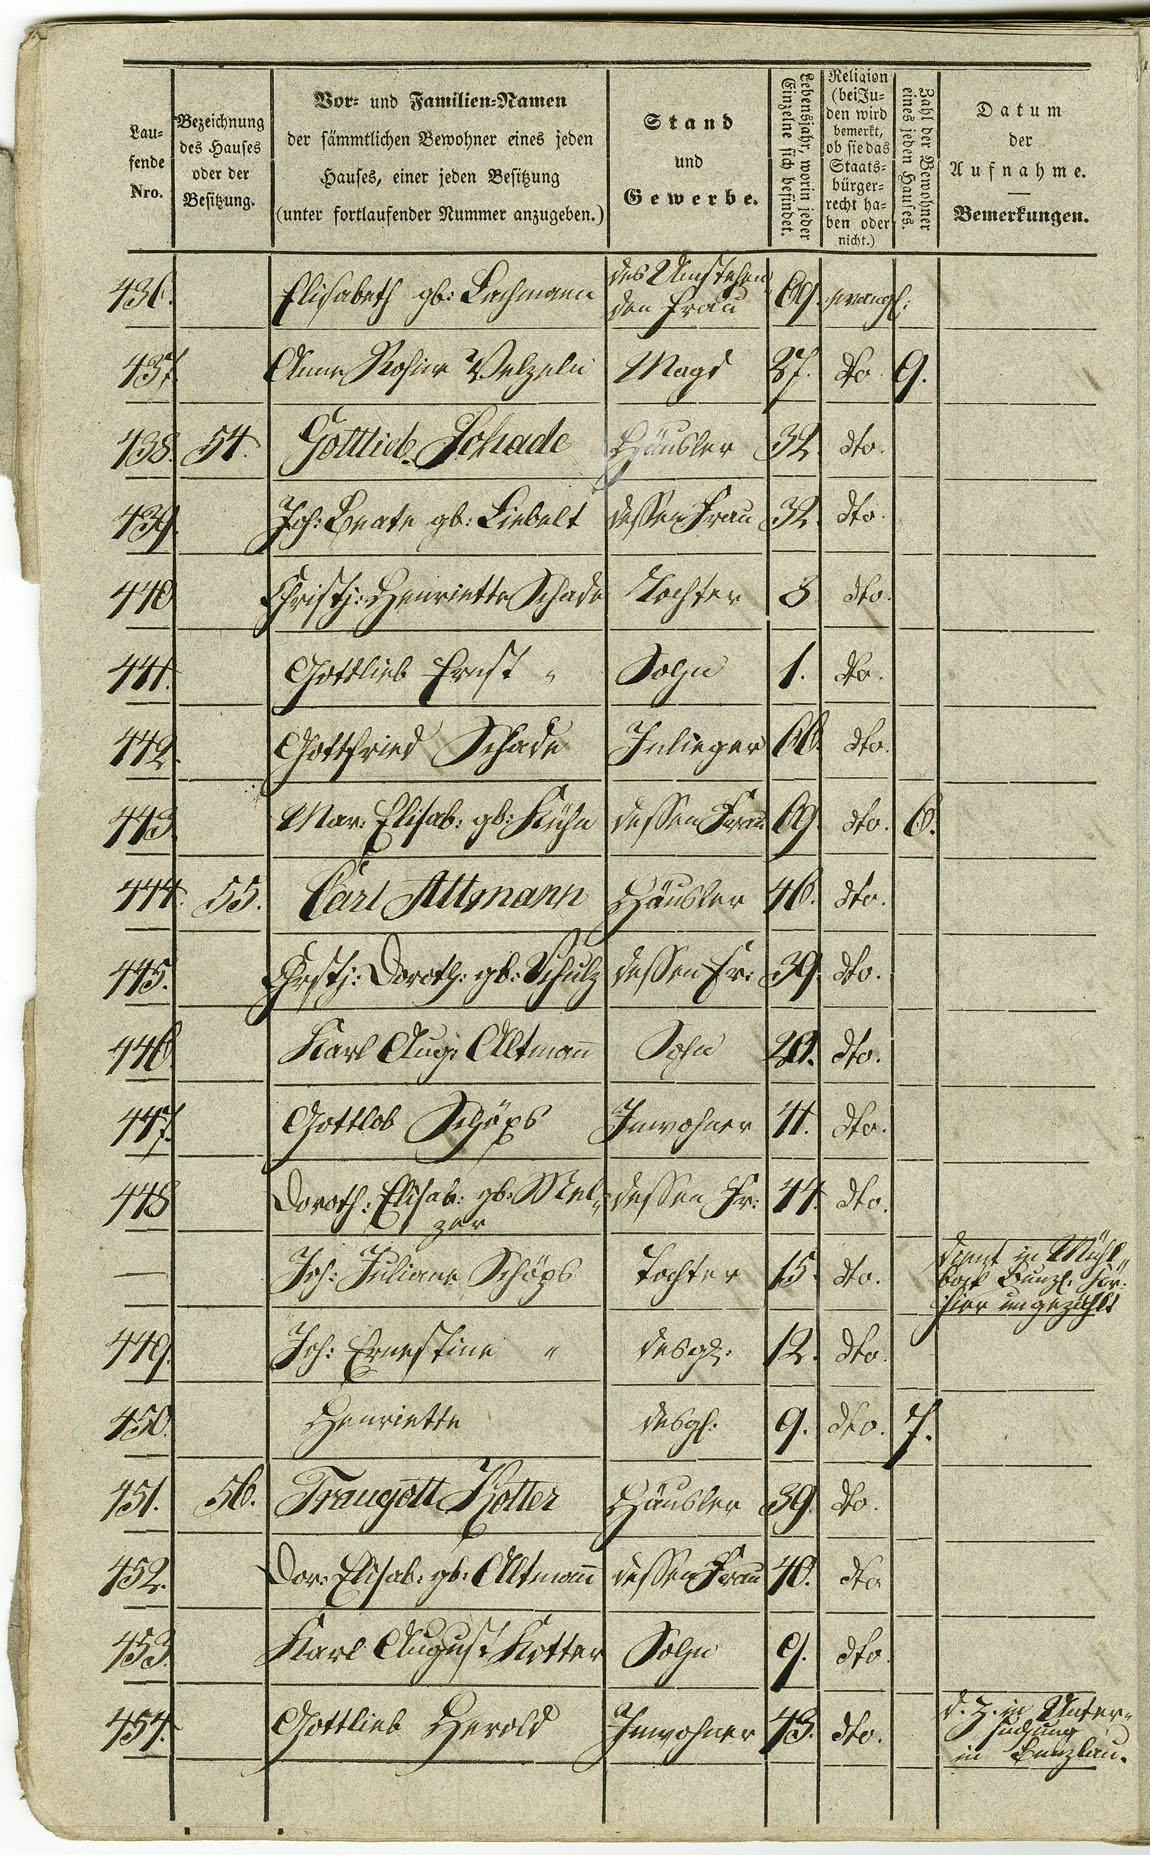 Lau-
fende
Nro.
Bezeichnung
des Hauses
oder der
Besitzung.
Vor- und Familien-Namen
der sämmtlichen Bewohner eines jeden
Hauses, einer jeden Besitzung
(unter fortlaufender Nummer anzugeben.)
Stand
und
Gewerbe.
Lebensjahr, worin jeder
Einzelne sich befindet.
Religion
(bei Ju-
den wird
bemerkt,
ob sie das
Staats-
bürger-
recht ha-
ben oder
nicht.)
Zahl der Bewohner
eines jeden Hauses.
Datum
der
Aufnahme.
Bemerkungen.
436. Elisabeth gb: Lachmann des Umstehen
den Frau 69. evangl:
437. Anna Rosine Welzeln Magd 37. dto 9.
438. 54. Gottlieb Schade Häusler 32. dto.
439. Joh: Beate gb: Liebelt dessen Frau 32. dto.
440 Christj: Henriette Schade Tochter 3 dto.
441. Gottlieb Ernst " Sohn 1. dto.
442. Gottfried Schade Inlieger 66. dto.
443. Mar: Elisab: gb: Kühn dessen Frau 69. dto. 6.
444. 55. Carl Altmann Häusler 46. dto.
445. Chrstj: Doroth: gb: Schulz dessen Fr: 39. dto.
446. Karl Aug: Altmann Sohn 20. dto.
447. Gottlob Schöps Inwohner 41. dto.
448 Doroth: Elisab: gb: Mel-
zer dessen Fr: 44. dto.
— Joh: Juliane Schöps Tochter 15. dto. dient in Mühl-
bock Bunzl:
hier ungezählt
449. Joh: Ernestine " desgl: 12. dto.
450. Henriette desgl: 9. dto. 7.
451. 56. Traugott Kotter Häusler 39. dto.
452. Dor: Elisab: gb: Altmann dessen Frau 40. dto
453. Karl August Kotter Sohn 9. dto.
454. Gottlieb Herold Inwohner 43. dto. d. Z. in Unter-
suchung
in Bunzlau.